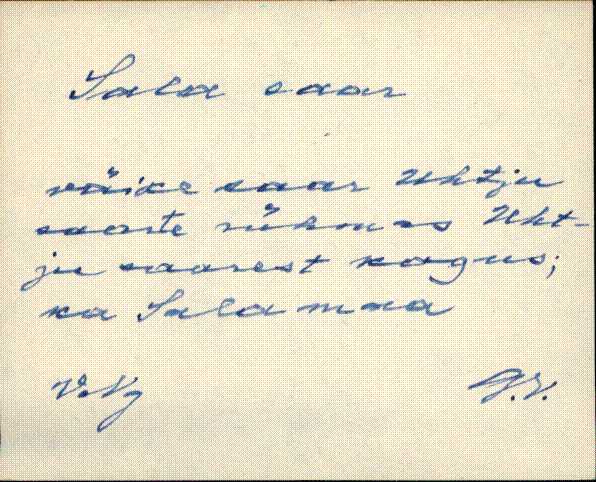 Sala saar
väike saar Uhtju
saarte rühmas Uht-
ju saarest kagus;
ka Salamaa
V.Ng
G.V.